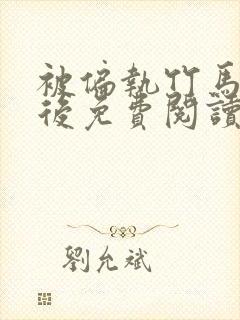 被偏執竹馬
後免費閱讀
劉允斌